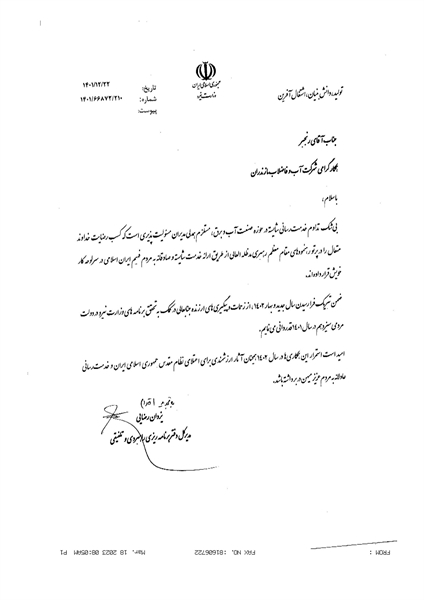 تولید، دانش بنیان، اشتغال آفرین
جمهوری اسلامی ایران
وزارت نیرو
تاریخ: ۱۴۰۱/۱۲/۲۲
شماره: ۱۴۰۱/۶۶۸۷۲/۲۱۰
پیوست:
جناب آقای رنجبر
همکار گرامی شرکت آب و فاضلاب مازندران
باسلام؛
بی شک تداوم خدمت رسانی شایسته در حوزه صنعت آب و برق، مستلزم همدلی مدیران مسئولیت پذیری است که کسب رضایت خداوند
متعال را در پرتو رهنمودهای مقام معظم رهبری مدظله العالی از طریق ارائه خدمت شایسته و صادقانه به مردم فهیم ایران اسلامی در سرلوحه کار
خویش قرار داده‌اند.
ضمن تبریک فرارسیدن سال جدید و بهار ۱۴۰۲، از زحمات و پیگیری های ارزنده جنابعالی در کمک به تحقق برنامه های وزارت نیرو در دولت
مردمی سیزدهم در سال ۱۴۰۱ قدردانی می نمایم.
امید است استمرار این همکاری ها در سال ۱۴۰۲ همچنان آثار ارزشمندی برای اعتلای نظام مقدس جمهوری اسلامی ایران و خدمت رسانی
عادلانه به مردم عزیز میهن در برداشته باشد.
یزدان رضایی
مدیرکل دفتر برنامه ریزی راهبردی و تلفیقی
FROM : FAX NO. :81606722 Mar. 18 2023 08:05AM P1